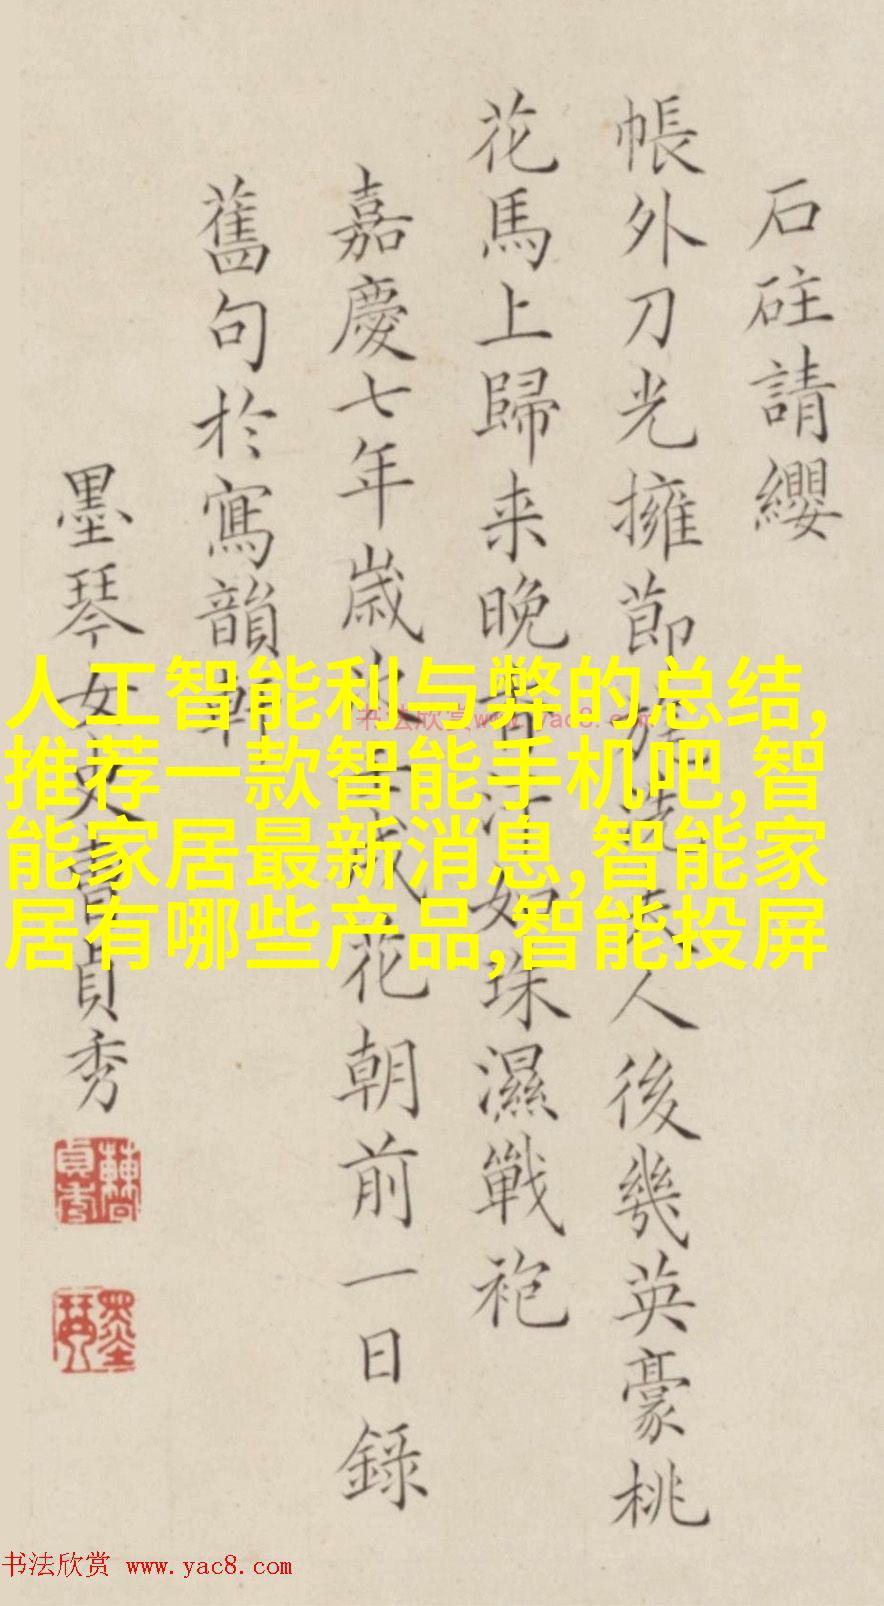 石砫請纓
帳外刀光擁節旄洗夫人後幾英豪桃
花馬上歸来晚汗如珠濕戰袍
嘉慶七年歳次壬戌花朝前一日錄
舊句於寫韻軒
墨琴女史曹貞秀
人工智能利与弊的总结,
推荐一款智能手机吧,智
能家居最新消息,智能家
居有哪些产品,智能投屏
书法欣赏www.yac8.com
书法欣赏 www.yac8.com